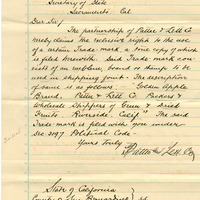 Secretary of State
Sacramento, Cal
Dear Sir/
The partnership of Patter & Lett Co
hereby claims the exclusive right to the use
of a certain Trade mark, a true copy of which
is filed herewith. Said Trade mark con-
sists of an emblem, bound so being to be
used in shipping fruit. The description
of same is as follows. Golden Apple
Brand. & Lett Co. Packers &
Wholesale Shippers of Green & Dried
Fruits Riverside Calif." The said
Trade-mark is filed with you under
Sec 3197 Political Code-
Yours Truly
& Co
State of California
County of San Bernardino ss